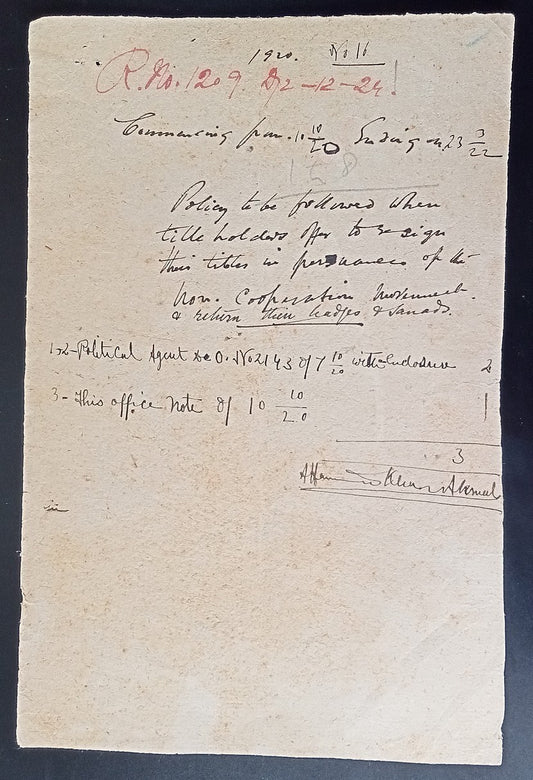 1920. No 16
R. No. 1209. D/2-12-24!
Commencing from 10 10/20 Ending on 23 3/22
158
Policy to be followed when
title holders offer to resign
their titles in persuance of the
Non. Cooperation movement.
& return their badges & Sanads.
1-2-Political Agent D.O. No 2143 of 7 10/20 with Enclosure 2
3- This office note of 10 10/20 1
3
Khan Akmal